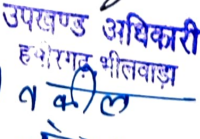 उपखण्ड अधिकारी
हमीरगढ़ भीलवाड़ा
वकील